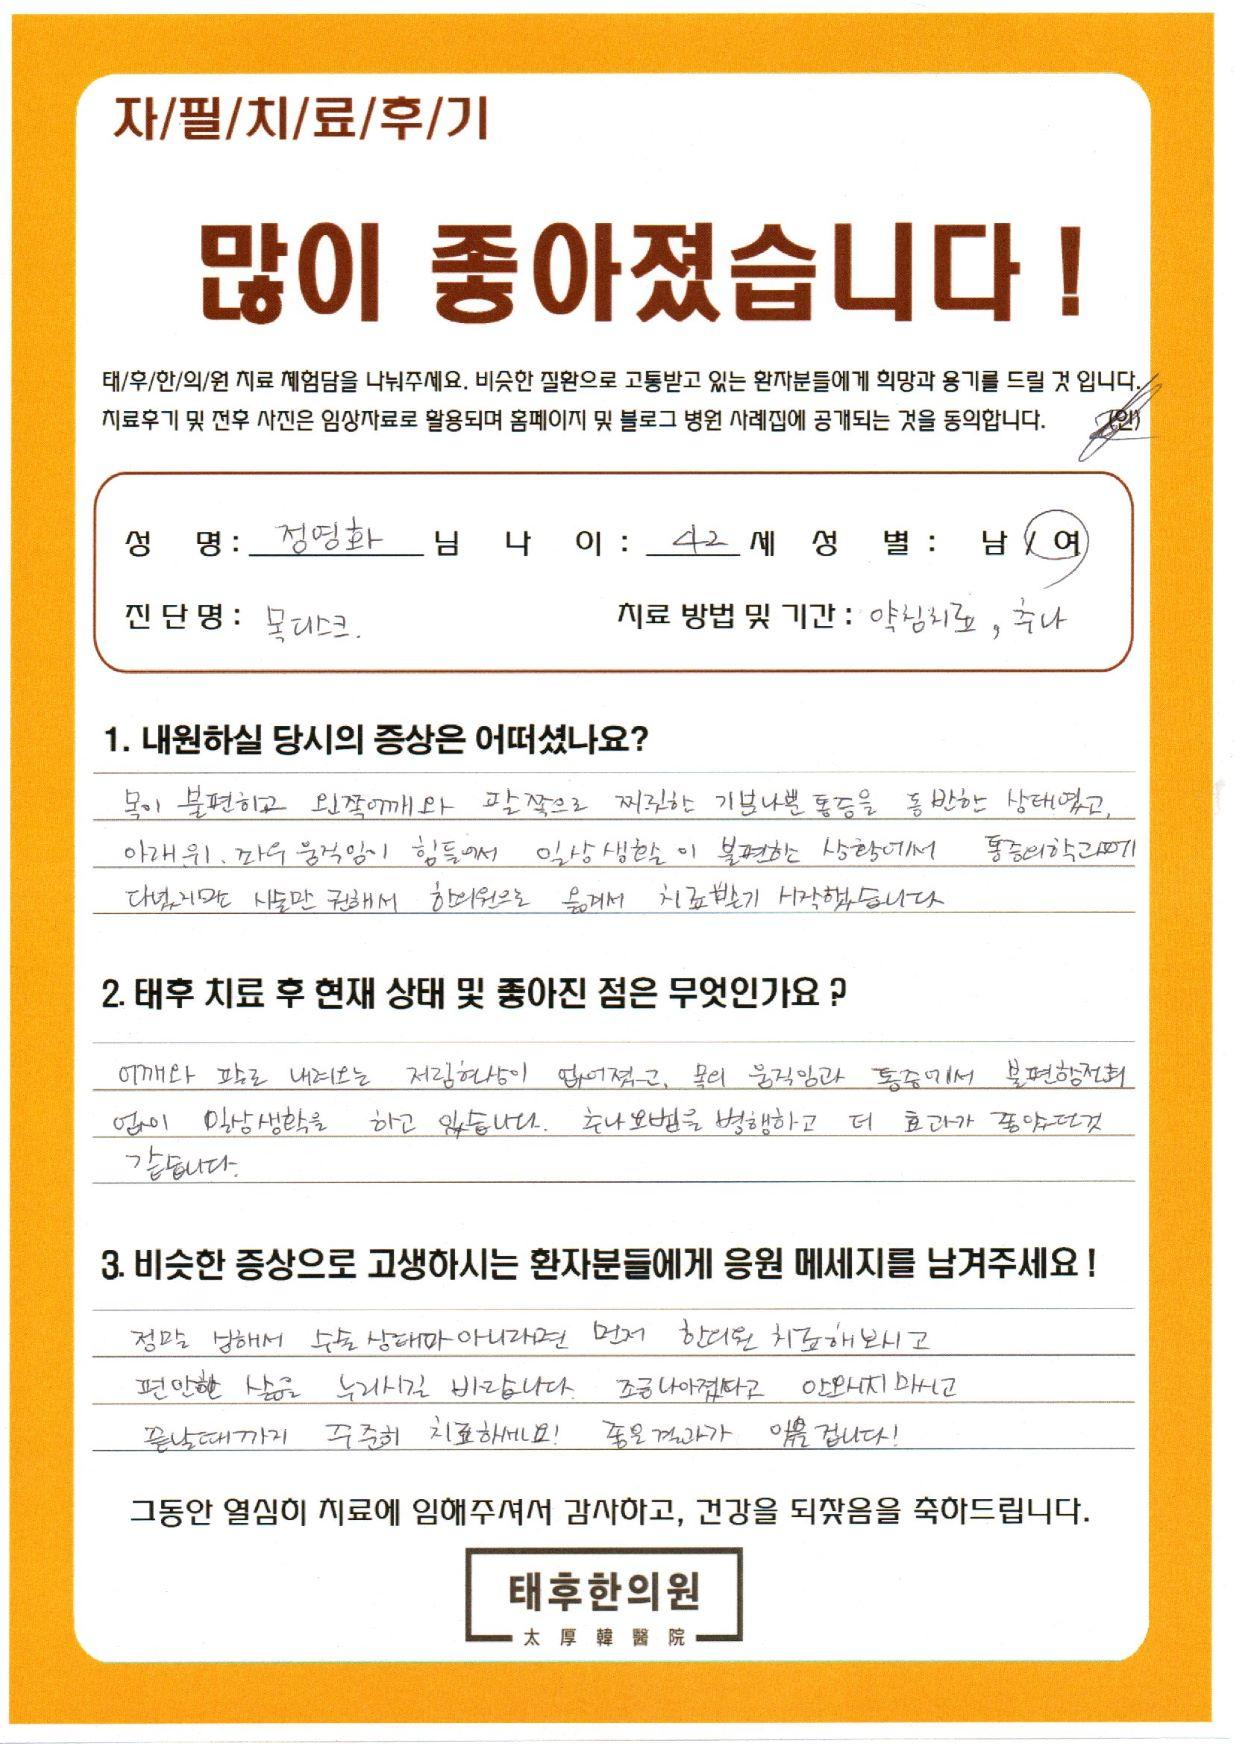 자/필/치/료/후/기
많이 좋아졌습니다!
태/후/한/의/원 치료 체험담을 나눠주세요. 비슷한 질환으로 고통받고 있는 환자분들에게 희망과 용기를 드릴 것 입니다.
치료후기 및 전후 사진은 임상자료로 활용되며 홈페이지 및 블로그 병원 사례집에 공개되는 것을 동의합니다. (인)
성 명 : 정영화 님 나 이 : 42 세 성 별 : 남 / 여
진 단 명 : 목디스크. 치료 방법 및 기간 : 약침치료, 추나
1. 내원하실 당시의 증상은 어떠셨나요?
목이 불편하고 왼쪽어깨와 팔쪽으로 찌릿한 기분나쁜 통증을 동반한 상태였고,
아래위, 좌우 움직임이 힘들어서 일상생활이 불편한 상황에서 통증의학과
다녔지만 시술만 권해서 한의원으로 옮겨서 치료받기 시작했습니다
2. 태후 치료 후 현재 상태 및 좋아진 점은 무엇인가요?
어깨와 팔로 내려오는 저림현상이 없어졌고, 목의 움직임과 통증에서 불편함전혀
없이 일상생활을 하고 있습니다. 추나요법을 병행하고 더 효과가 좋았던것
같습니다.
3. 비슷한 증상으로 고생하시는 환자분들에게 응원 메세지를 남겨주세요!
정말 심해서 수술 상태마 아니라면 먼저 한의원 치료해보시고
편안한 삶을 누리시길 바랍니다. 조금나아졌다고 안오시지마시고
끝날때까지 꾸준히 치료하세요! 좋은결과가 있을겁니다!
그동안 열심히 치료에 임해주셔서 감사하고, 건강을 되찾음을 축하드립니다.
태후한의원
太厚韓醫院